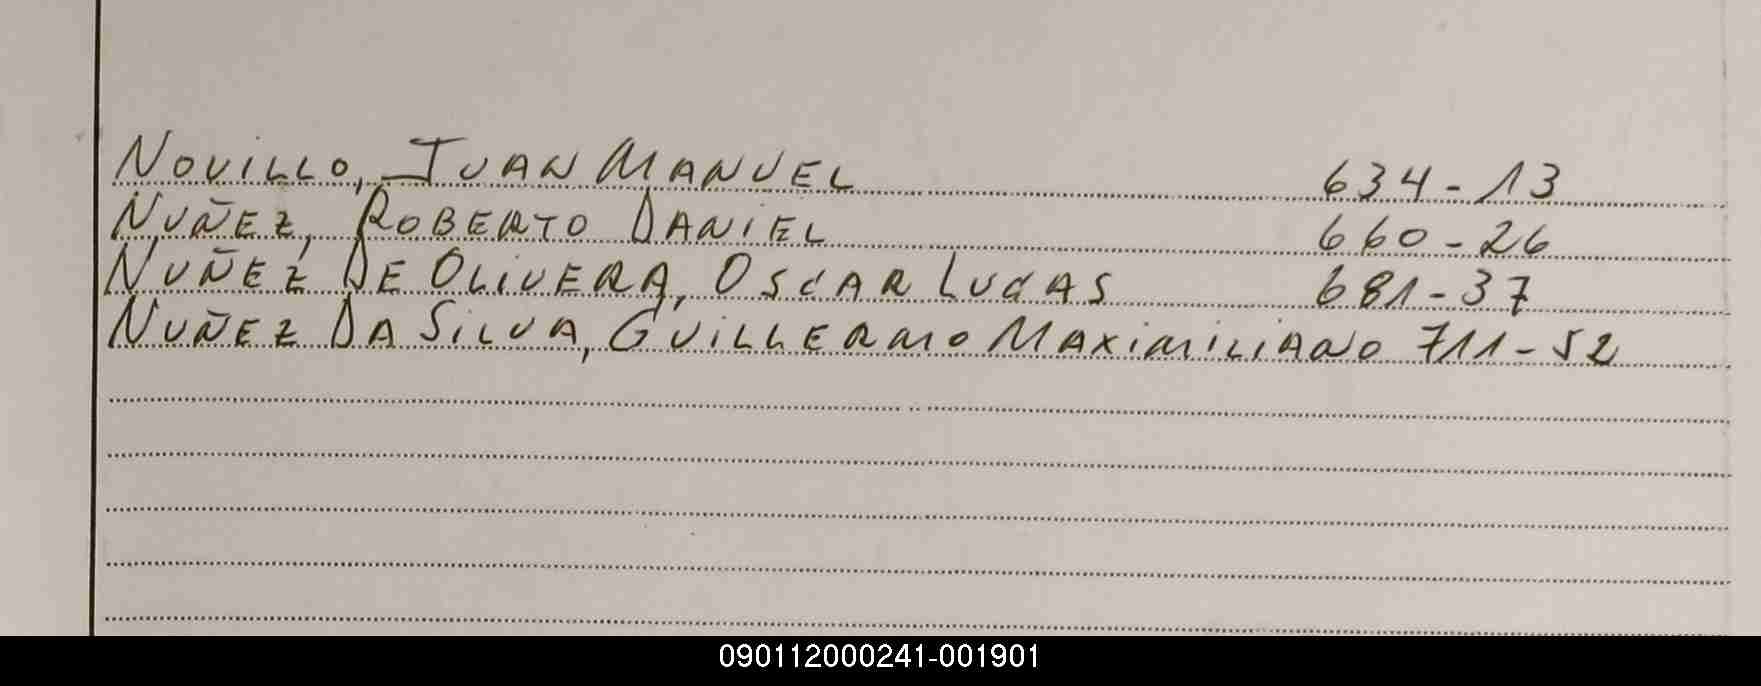 NOVILLO, JUAN MANUEL 634-13
NUÑEZ, ROBERTO DANIEL 660-26
NUÑEZ DE OLIVERA, OSCAR LUCAS 681-37
NUÑEZ DA SILVA, GUILLERMO MAXIMILIANO 711-52
090112000241-001901